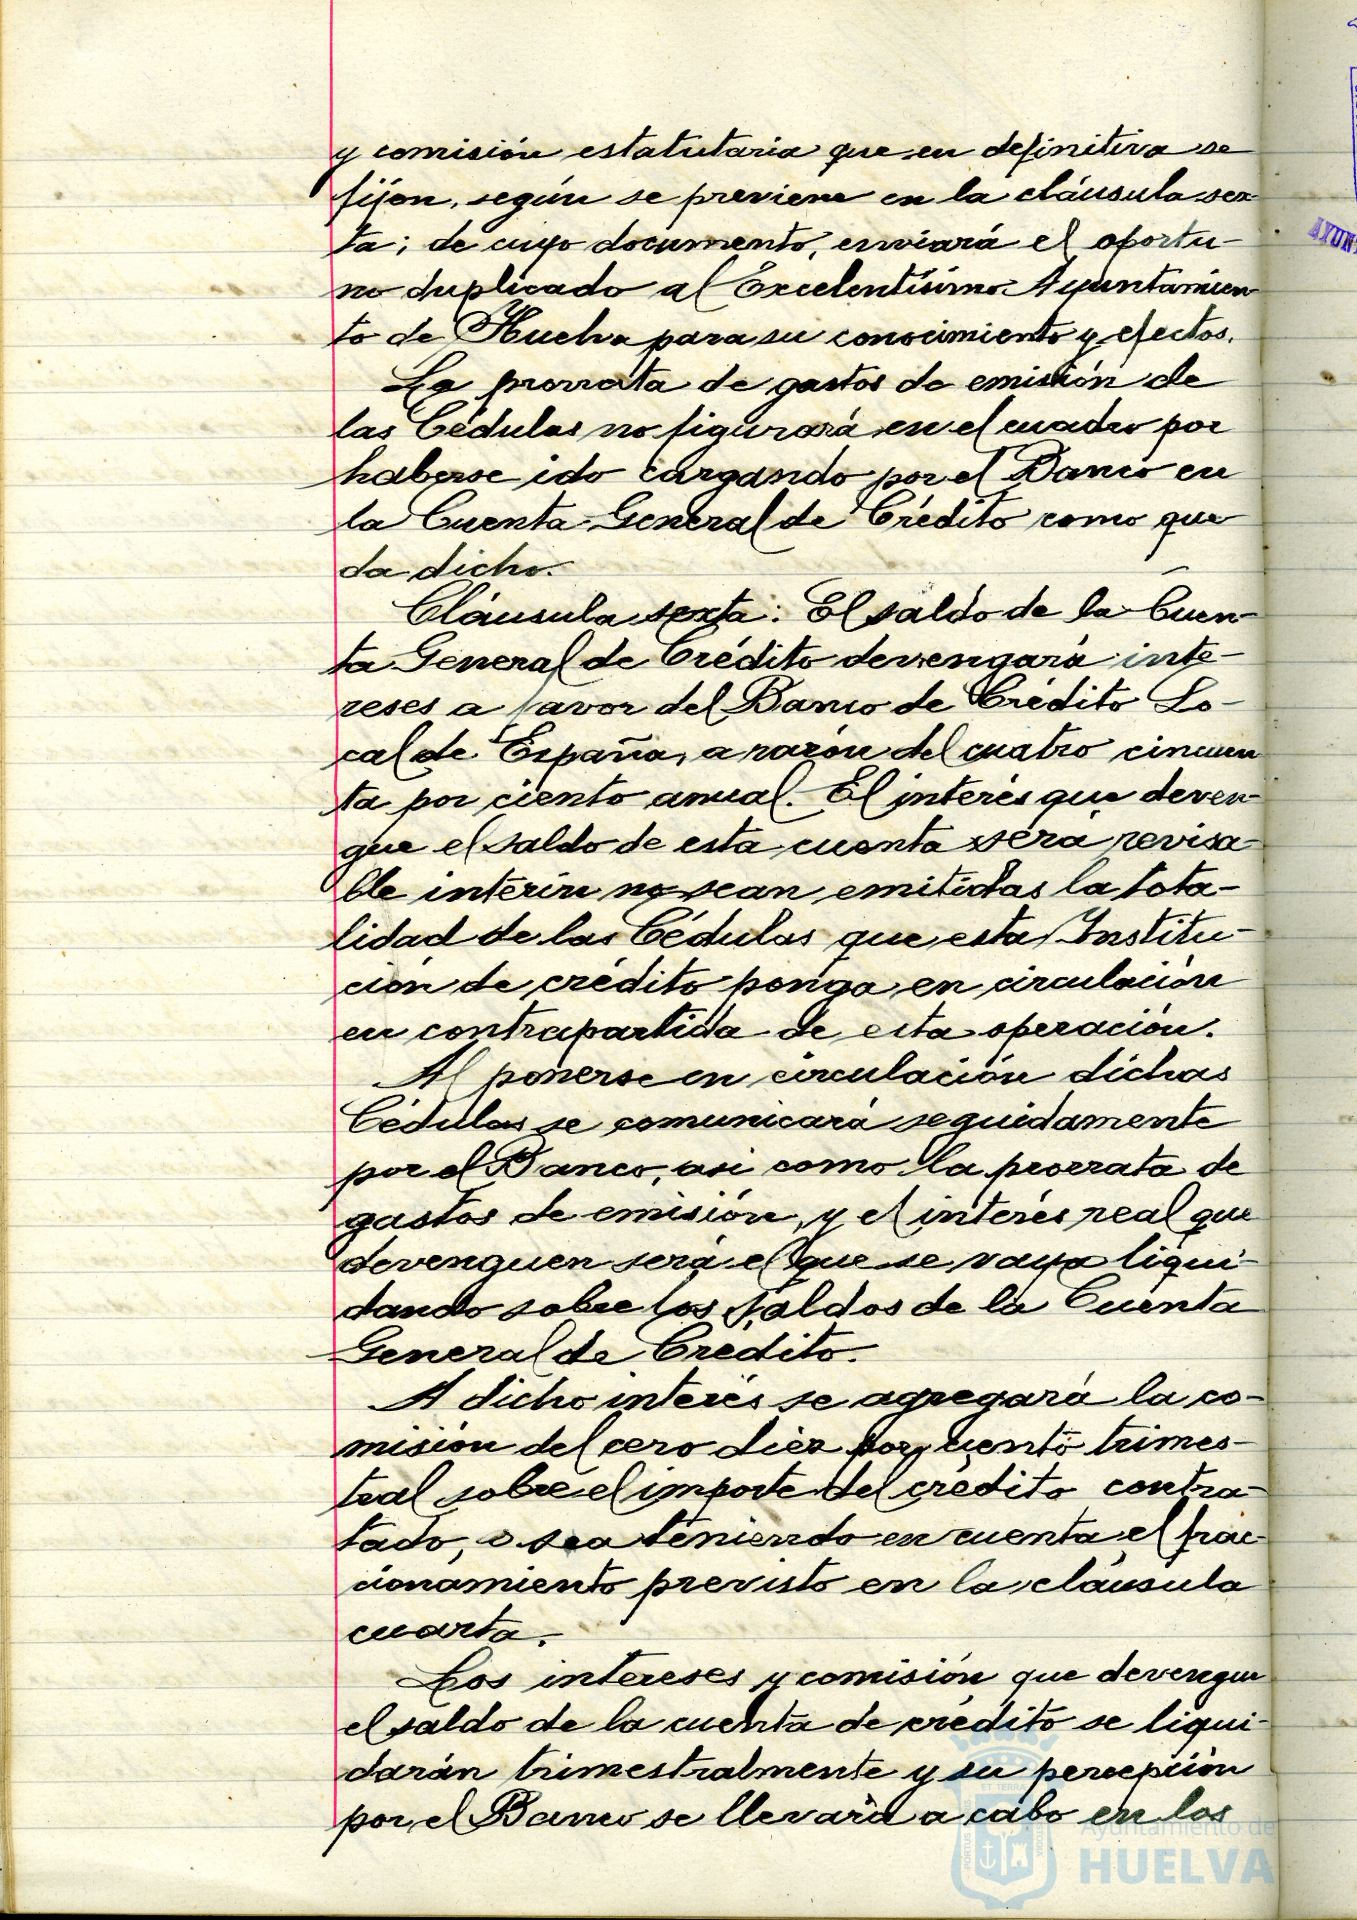 y comisión estatutaria que en definitiva se
fijen, según se previene en la cláusula sex-
ta; de cuyo documento, enviará el oportu-
no duplicado al Excelentísimo Ayuntamien-
to de Huelva para su conocimiento y efectos.
La prorrata de gastos de emisión de
las Cédulas no figurará en el cuadro por
haberse ido cargando por el Banco en
la Cuenta General de Crédito como que
da dicho.
Cláusula sexta: El saldo de la Cuen-
ta General de Crédito devengará inte-
reses a favor del Banco de Crédito Lo-
cal de España, a razón del cuatro cincuen
ta por ciento anual. El interés que deven-
gue el saldo de esta cuenta será revisa-
ble interin no sean emitidas la tota-
lidad de las Cédulas que esta Institu-
ción de crédito ponga en circulación
en contrapartida de esta operación.
Al ponerse en circulación dichas
Cédulas se comunicará seguidamente
por el Banco, asi como la prorrata de
gastos de emisión, y el interés real que
devenguen será el que se vaya liqui-
dando sobre los saldos de la Cuenta
General de Crédito.
A dicho interés se agregará la co-
misión del cero diez por ciento trimes-
tral sobre el importe del crédito contra-
tado, o sea teniendo en cuenta el frac-
cionamiento previsto en la cláusula
cuarta.
Los intereses y comisión que devengue
el saldo de la cuenta de crédito se liqui-
darán trimestralmente y su percepción
por el Banco se llevará a cabo en los
Ayuntamiento de
HUELVA